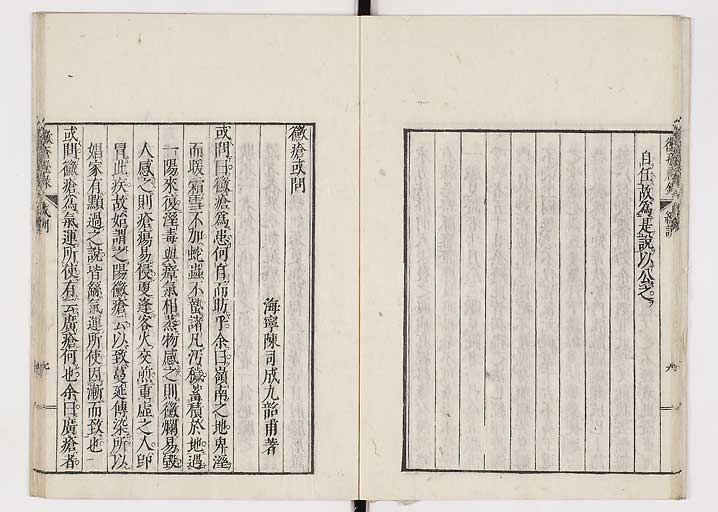 自任故爲是說以公之
黴瘡或問
海寧陳司成九韶甫著
或問曰黴瘡爲患何自而昉乎余曰嶺南之地卑溼
而暖霜雪不加蛇蟲不蟄諸凡汚穢蓄積於地遇
一陽來復溼毒與瘴氣相蒸物感之則黴爛易毀
人感之則瘡瘍易侵更逢客火交煎重虛之人卽
冐此疾故始謂之陽黴瘡云以致蔓延傳染所以
娼家有㸃過之說皆繇氣運所使因漸而致也一
或問黴瘡爲氣運所使有云廣瘡何也余曰廣瘡者